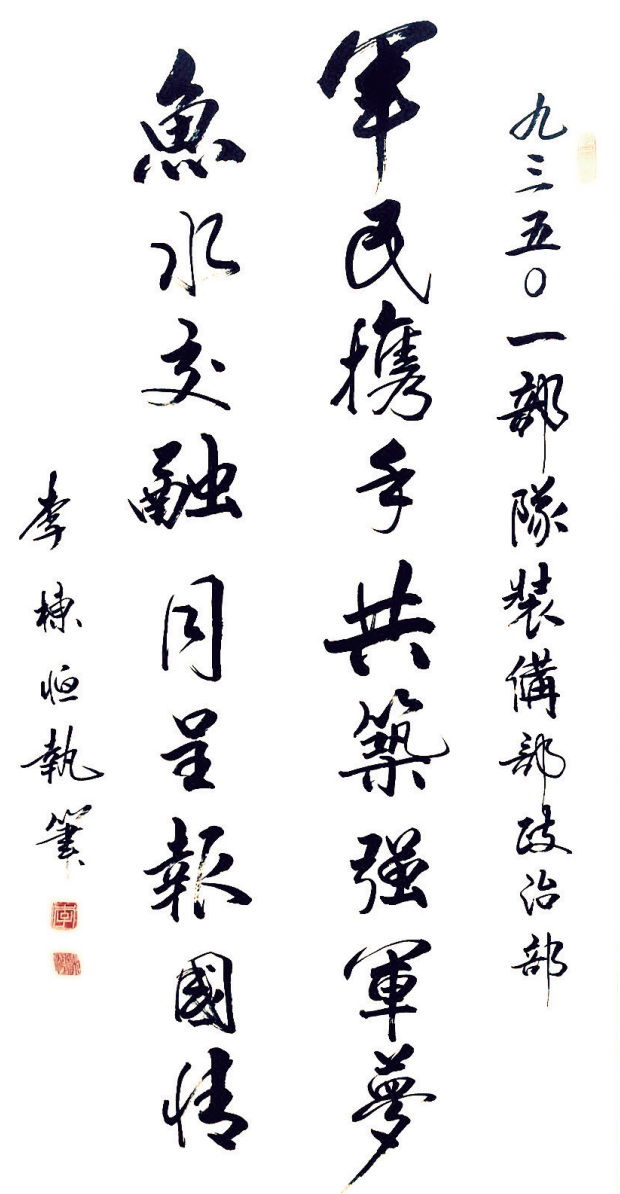 九三五〇一部隊装備部政治部
军民携手共築强軍夢
魚水交融同呈報國情
李棟恒執筆